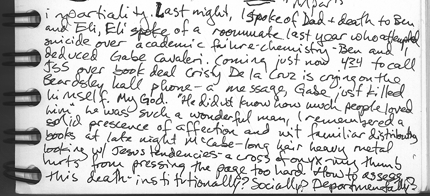 impartiality. Last night, I spoke of Dad + death to Ben
and Eli, Eli spoke of a roommate last year who attempted
suicide over academic failure-chemistry - Ben and
deduced Gabe Cavaleri. Coming just now 424 to call
JSS over book deal Crisly De la Cruz is crying on the
Beardsley hall phone - a message, Gabe just killed
himself. My God. "He didn't know how much people loved
him he was such a wonderful man, I remembered a
solid prescence of affection and wit familiar distributing
books at late night McCabe - long hair heavy metal
looking w/ Jesus tendencies - a cross of onyx - my thumb
hurts from pressing the page too hard. How to assess
this death - institutionally? Socially? Departmentally?